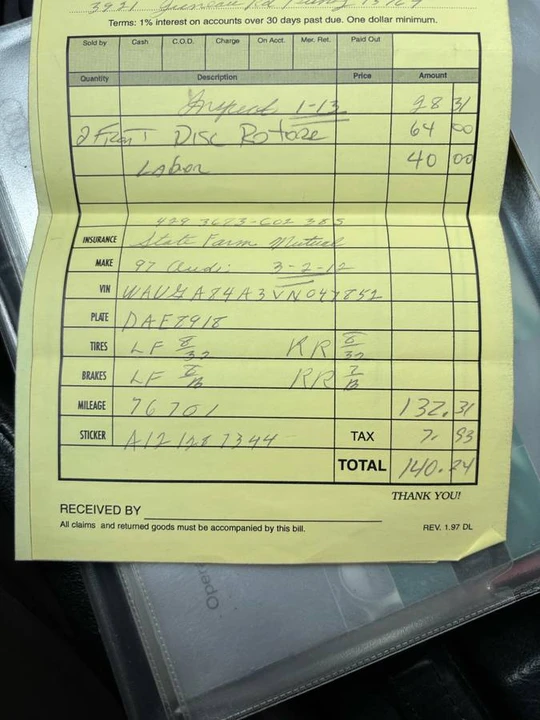 3921 Juneau Rd Punxy 15767
Terms: 1% interest on accounts over 30 days past due. One dollar minimum.
Sold by Cash C.O.D. Charge On Acct. Mer. Ret. Paid Out
Quantity Description Price Amount
Inspect 1-13 28 31
2 Front Disc Rotors 64 00
Labor 40 00
State Farm Mutual
INSURANCE
MAKE 97 Audi 3-2-12
VIN WAUGA84A3VN047852
PLATE DAE8918
TIRES LF 8/32 RR 8/32
BRAKES LF RR
MILEAGE 76701 132.31
STICKER TAX 7.93
TOTAL 140.24
THANK YOU!
RECEIVED BY
All claims and returned goods must be accompanied by this bill. REV. 1.97 DL
Oper